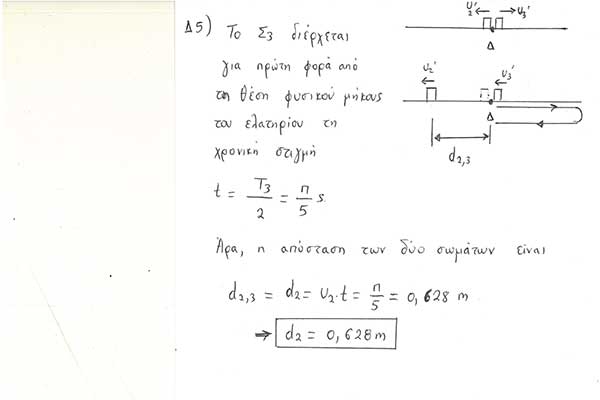 Δ5) Το Σ3 διέρχεται
για πρώτη φορά από
τη θέση φυσικού μήκους
του ελατηρίου τη
χρονική στιγμή
t = T3/2 = π/5 s
Άρα, η απόσταση των δύο σωμάτων είναι
d2,3 = d2 = υ2·t = π/5 = 0,628 m
⇒ d2 = 0,628 m
υ2' υ3'
Δ
υ2' υ3'
Δ
d2,3